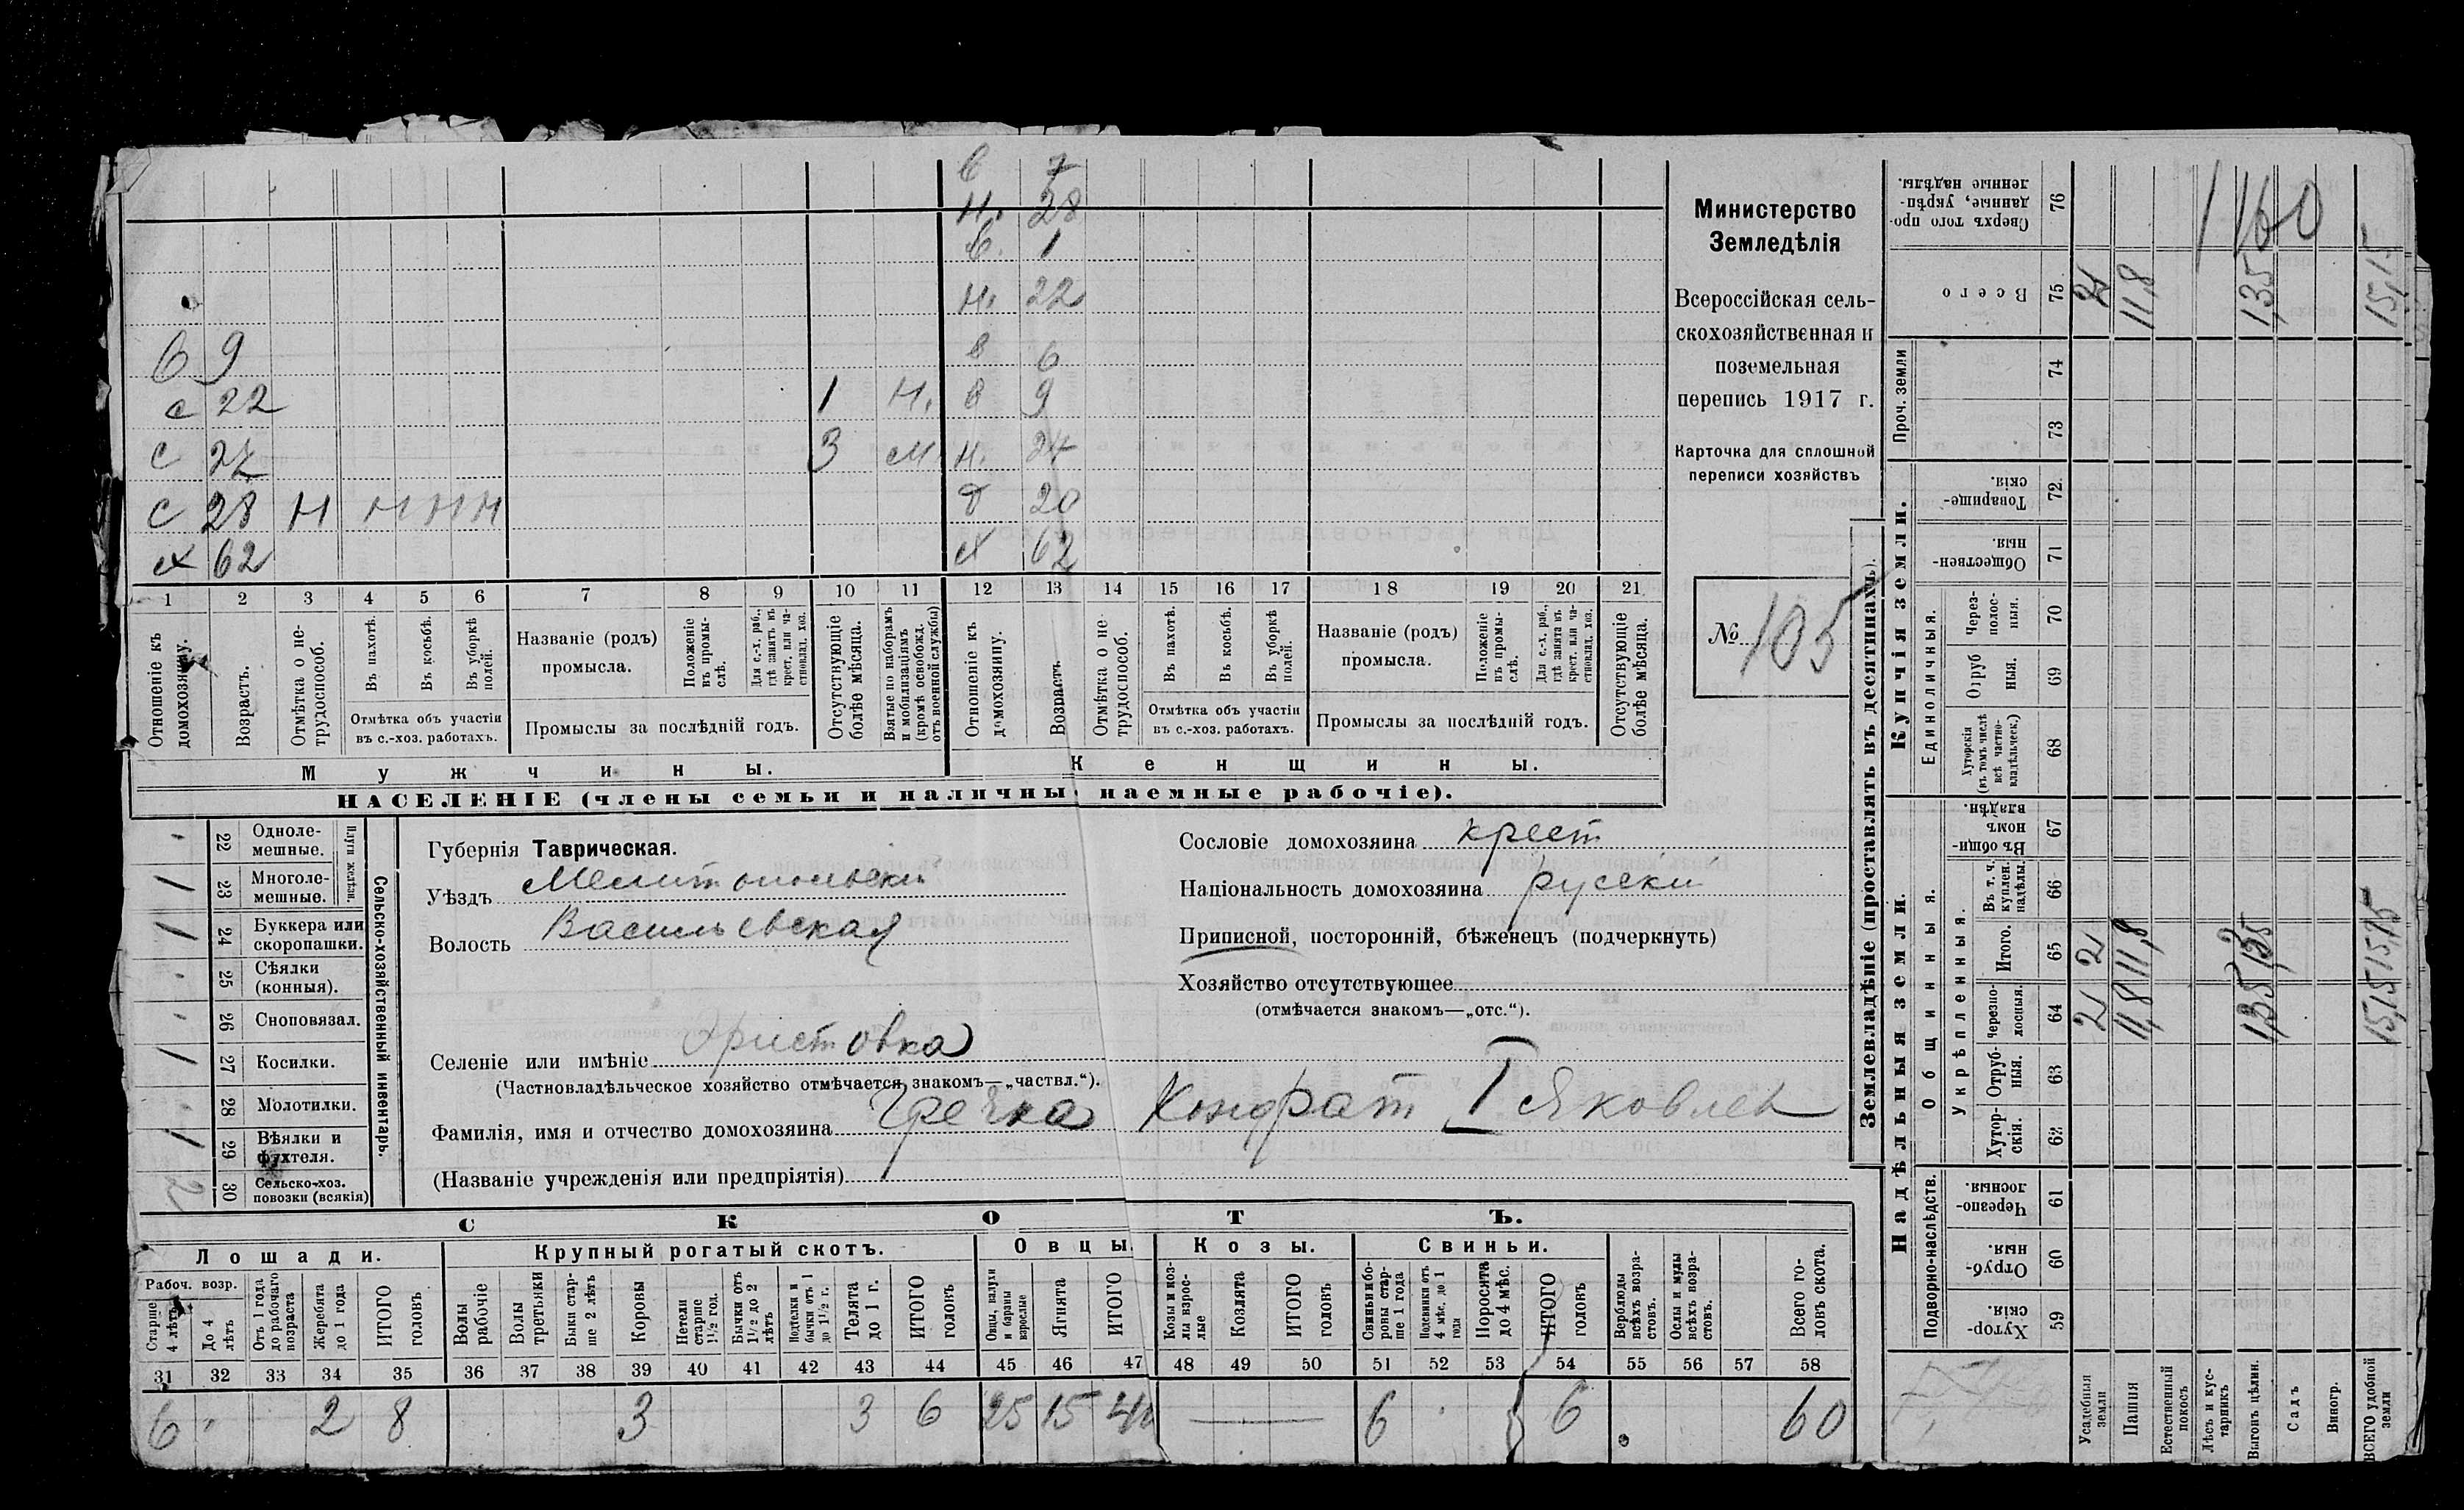 в 7
н. 28
в. 1
н. 22
в 9 в 6
с 22 1 н. в 9
с 27 3 м. н. 24
с 28 н н н н 20
х 62 х 62
1 2 3 4 5 6 7 8 9 10 11 12 13 14 15 16 17 18 19 20 21
Отношеніе къ домохозяину.
Возрастъ.
Отмѣтка о не-трудоспособ.
Въ пахотѣ.
Въ косьбѣ.
Въ уборкѣ полей.
Отмѣтка объ участіи въ с.-хоз. работахъ.
Названіе (родъ) промысла.
Положеніе въ промы-слѣ.
Для с.-х. раб., гдѣ занятъ въ крест. или ча-стновлад. хоз.
Промыслы за послѣдній годъ.
Отсутствующіе болѣе мѣсяца.
Взятые по наборамъ и мобилизаціямъ (кромѣ освобожд. отъ военной службы)
Отношеніе къ домохозяину.
Возрастъ.
Отмѣтка о не-трудоспособ.
Въ пахотѣ.
Въ косьбѣ.
Въ уборкѣ полей.
Отмѣтка объ участіи въ с.-хоз. работахъ.
Названіе (родъ) промысла.
Положеніе въ промы-слѣ.
Для с.-х. раб., гдѣ занята въ крест. или ча-стновлад. хоз.
Промыслы за послѣдній годъ.
Отсутствующіе болѣе мѣсяца.
Мужчины. Женщины.
НАСЕЛЕНІЕ (члены семьи и наличные наемные рабочіе).
Министерство
Земледѣлія
Всероссійская сель-
скохозяйственная и
поземельная
перепись 1917 г.
Карточка для сплошной
переписи хозяйствъ
№ 105
Сельско-хозяйственный инвентарь.
Плуги желѣзн.
22 Одноле-мешные.
1 23 Многоле-мешные.
1 24 Буккера или скоропашки.
25 Сѣялки (конныя).
26 Сноповязал.
1 27 Косилки.
28 Молотилки.
1 29 Вѣялки и фухтеля.
2 30 Сельско-хоз. повозки (всякія)
Губернія Таврическая.
Уѣздъ Мелитопольски
Волость Васильевская
Селеніе или имѣніе Христовка
(Частновладѣльческое хозяйство отмѣчается знакомъ—„частвл.“).
Фамилія, имя и отчество домохозяина Гречка Кондрат I Яковлев
(Названіе учрежденія или предпріятія)
Сословіе домохозяина крест
Національность домохозяина русски
Приписной, посторонній, бѣженецъ (подчеркнуть)
Хозяйство отсутствующее
(отмѣчается знакомъ—„отс.“).
СКОТЪ.
Лошади. Крупный рогатый скотъ. Овцы. Козы. Свиньи.
Рабоч. возр.
Старше 4 лѣтъ
До 4 лѣтъ
Отъ 1 года до рабочаго возраста
Жеребята до 1 года
ИТОГО головъ
Волы рабочіе
Волы третьяки
Быки стар-ше 2 лѣтъ
Коровы
Нетели старше 1½ год.
Бычки отъ 1½ до 2 лѣтъ
Подтелки и бычки отъ 1 до 1½ г.
Телята до 1 г.
ИТОГО головъ
Овцы, валухи и бараны взрослые
Ягнята
ИТОГО
Козы и коз-лы взрос-лые
Козлята
ИТОГО головъ
Свиньи и бо-ровы стар-ше 1 года
Подсвинки отъ 4 мѣс. до 1 года
Поросята до 4 мѣс.
ИТОГО головъ
Верблюды всѣхъ возра-стовъ.
Ослы и мулы всѣхъ возра-стовъ.
Всего го-ловъ скота.
31 32 33 34 35 36 37 38 39 40 41 42 43 44 45 46 47 48 49 50 51 52 53 54 55 56 57 58
6 2 8 3 3 6 25 15 40 — 6 6 60
Землевладѣніе (проставлять въ десятинахъ).
Купчія земли.
Надѣльныя земли.
Сверхъ того про-данные, укрѣп-ленные надѣлы. 76
160
Всего 75 2 11,8 1,35 15,15
Проч. земли 74 73
Товарище-скія. 72.
Обществен-ныя. 71
Единоличныя.
Через-полос-ныя. 70
Отруб ныя. 69
Хуторскія (въ томъ числѣ всѣ частно-владѣльческ.) 68
Общинныя.
Въ общи-номъ владѣн. 67
Укрѣпленныя.
Въ т. ч. куплен. надѣлы. 66
Итого. 65 2 11,8 1,35 15,15
Черезпо-лосныя. 64 2 11,8 1,35 15,15
Отруб-ныя. 63
Хутор-скія. 62
Подворно-наслѣдств.
Черезпо-лосныя. 61
Отруб-ныя. 60
Хутор-скія. 59
Усадебныя земли
Пашня
Естественный покосъ
Лѣсъ и кус-тарникъ
Выгонъ цѣлин.
Садъ
Виногр.
ВСЕГО удобной земли